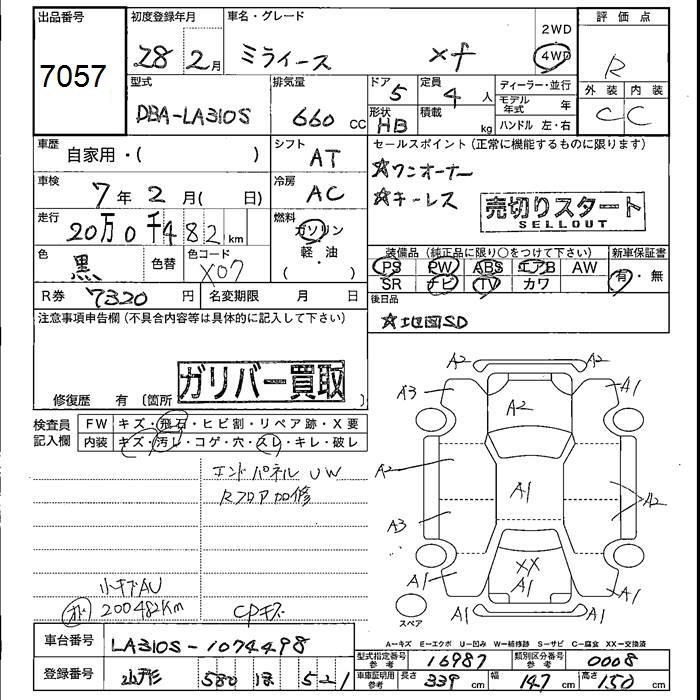 出品番号
7057
初度登録年月
28 2月
車名・グレード
ミライース Xf
2WD
4WD
評価点
R
型式
DBA-LA310S
排気量
660 CC
ドア 5
形状 HB
定員 4 人
積載 kg
ディーラー・並行
モデル年式 年
ハンドル 左・右
外装 内装
C C
車歴
自家用・( )
シフト
AT
セールスポイント (正常に機能するものに限ります)
☆ワンオーナー
☆キーレス
売切りスタート
SELLOUT
車検
7年 2月( 日)
冷房
AC
走行
20万0千482km
燃料
ガソリン
(軽・油)
色
黒
色替
色コード
X07
装備品 (純正品に限り○をつけて下さい)
PS PW ABS エアB AW
SR ナビ TV カワ
新車保証書
有・無
R券 7320 円
名変期限 月 日
後日品
☆地図SD
注意事項申告欄 (不具合内容等は具体的に記入して下さい)
ガリバー買取
修復歴 有 〔箇所
検査員記入欄
FW キズ・飛石・ヒビ割・リペア跡・X要
内装 キズ・汚レ・コゲ・穴・スレ・キレ・破レ
エンドパネル UW
Rフロア加修
小キズAU
200482Km
CPキズ
A2 A2
A3 A1
A2
A2
A1
A2
A3
XX
A1
A1 A1
A1 A1
スペア
A-キズ E-エクボ U-凹み W-補修跡 S-サビ C-腐食 XX-交換済
車台番号
LA310S-1074498
型式指定番号 参考 16987
類別区分番号 参考 0008
登録番号
山形 580 ほ 521
車庫証明用 参考 長さ 339 cm 幅 147 cm 高さ 150 cm